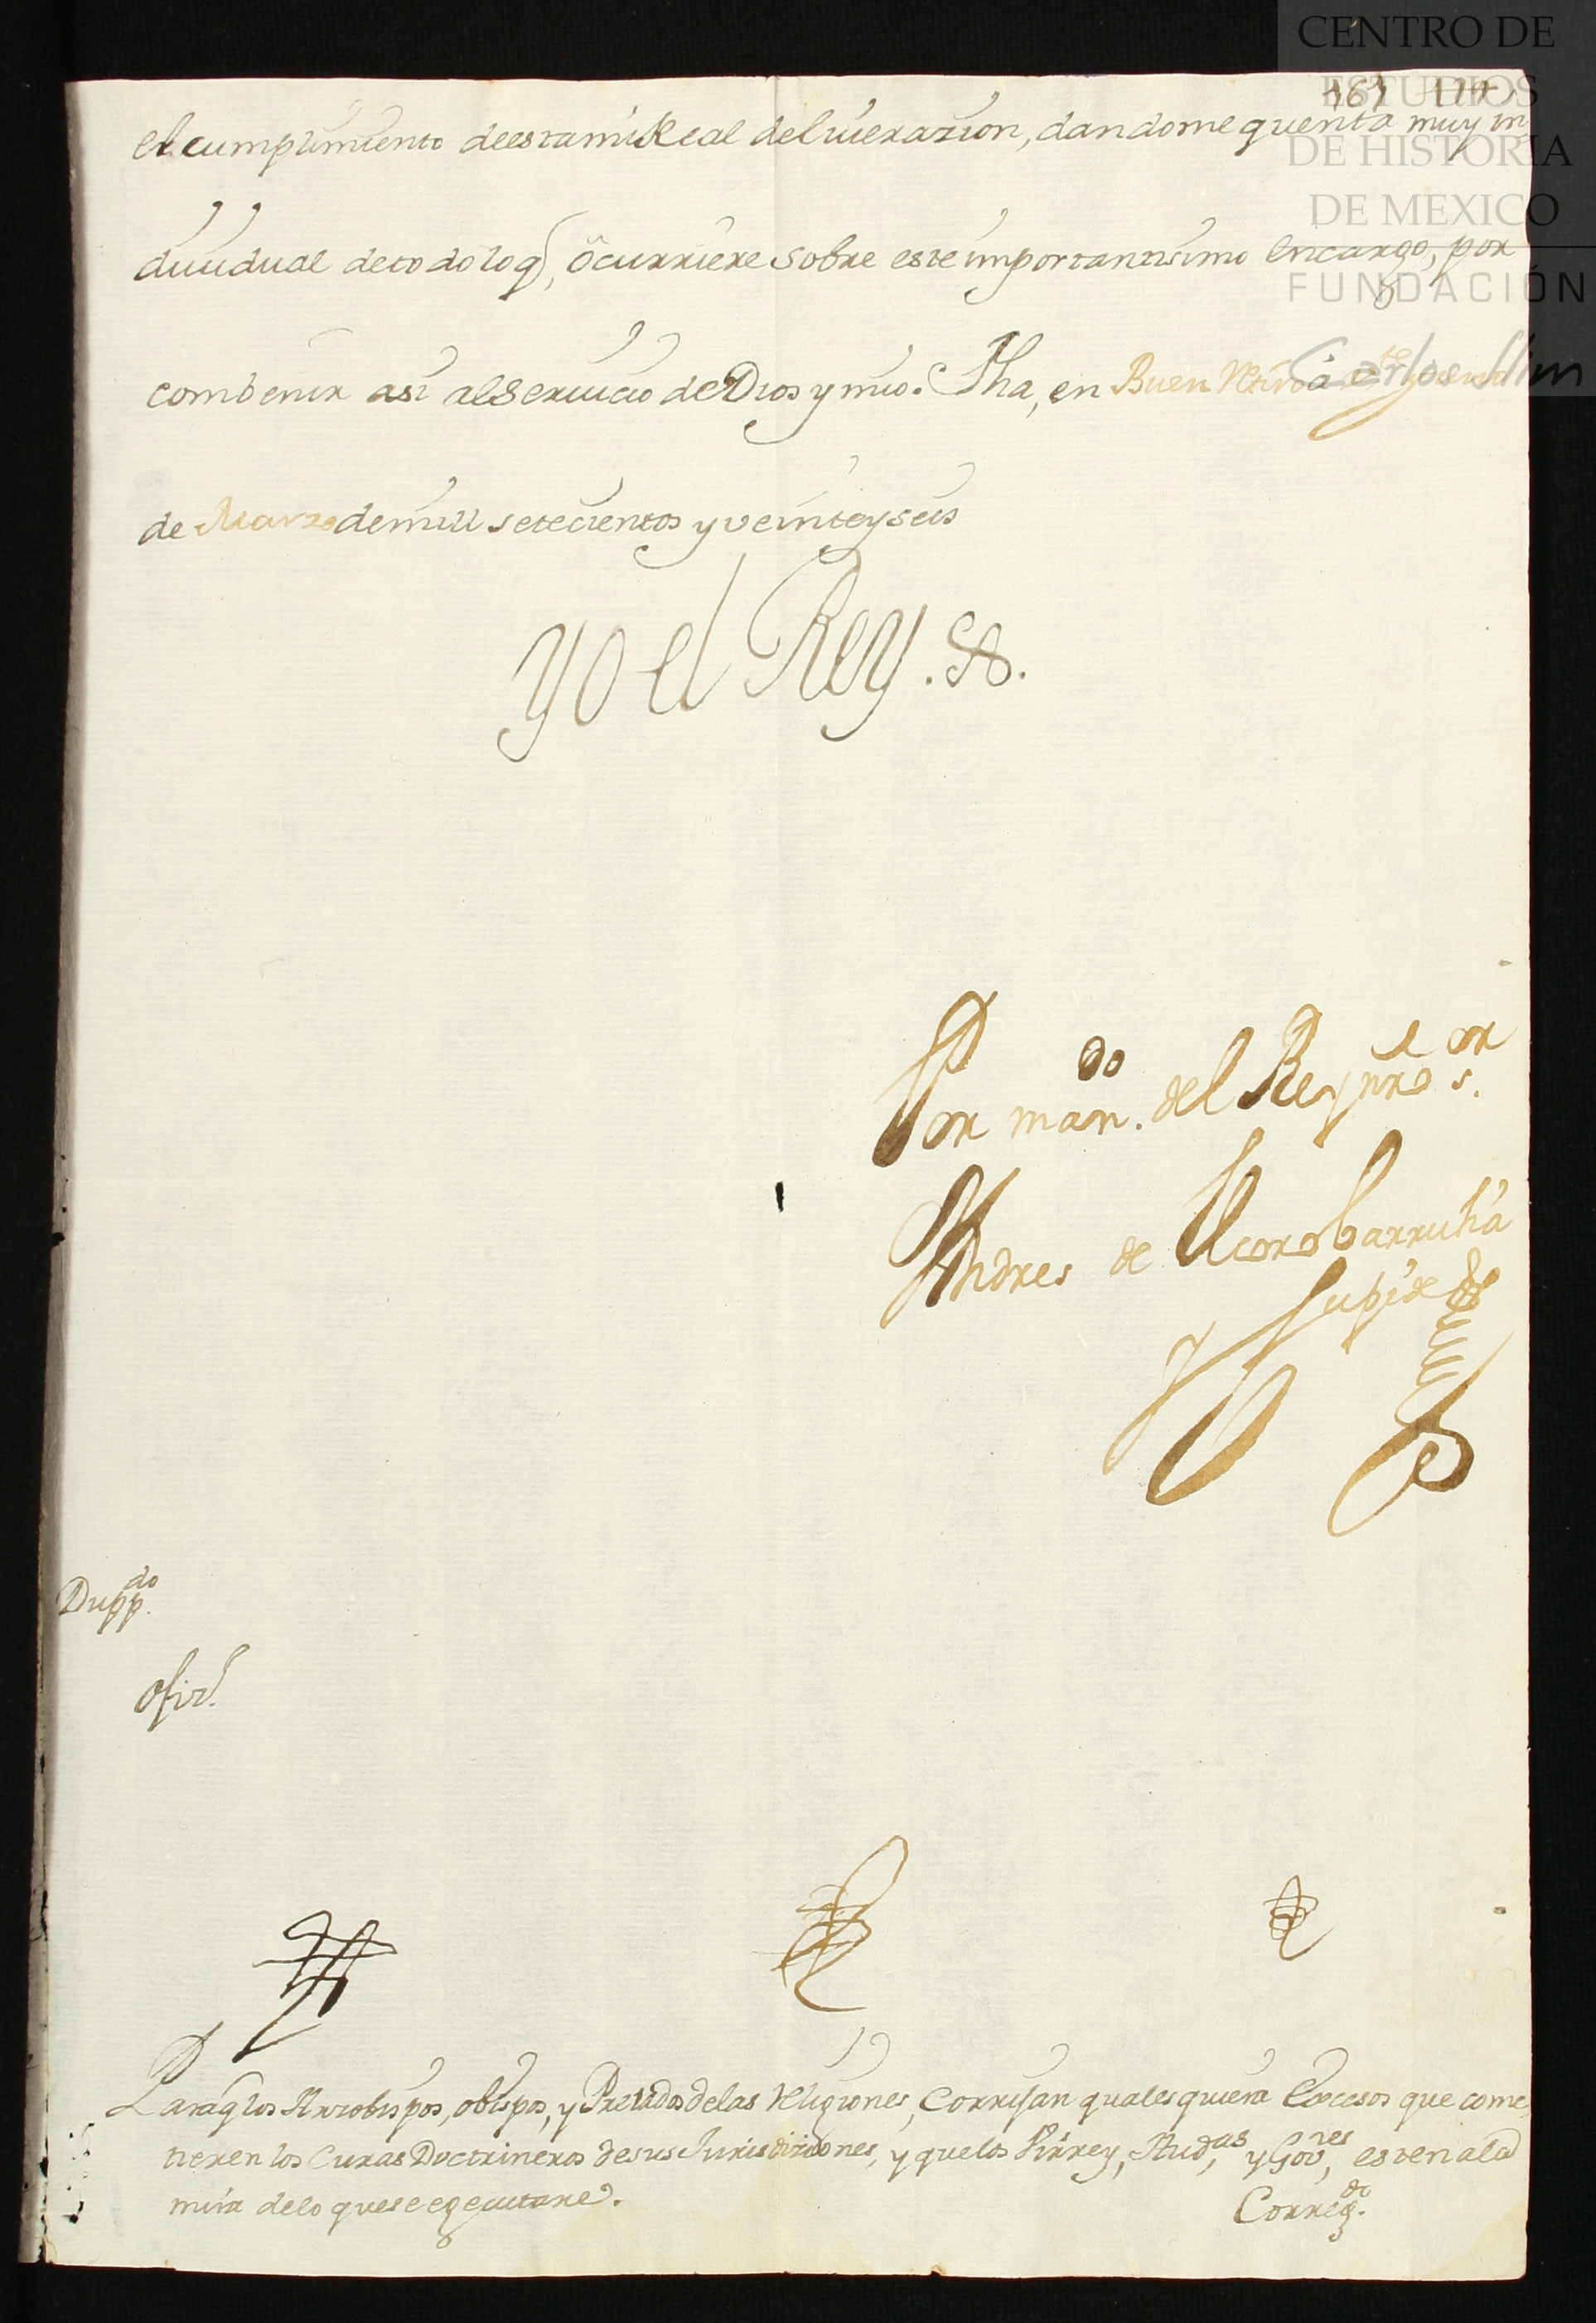 CENTRO DE
ESTUDIOS
DE HISTORIA
DE MEXICO
FUNDACIÓN
Carlos Slim
el cumplimiento de esta mi Real deliuerazion, dandome quenta muy in
diuidual de todo lo q, ôcurriere sobre este importantisimo encargo, por
combenir asi al Seruicio de Dios y mio. Fha, en Buen Retiro à
de Marzo de mill setecientos y veinte y seis
Yo el Rey.
Por man.do del Rey nro s.or
Andres de Elcorobarrutia
y Zupide
Dupp.do
ofiz.
Para q los Arzobispos, obispos, y Prelados de las Religiones, Corrijan qualesquiera Excesos que come
tieren los Curas Doctrineros de sus Jurisdiziones, y que los Virrey, Aud.as, y Gov.res, esten a la
mira de lo que se egecutare.
Correg.do